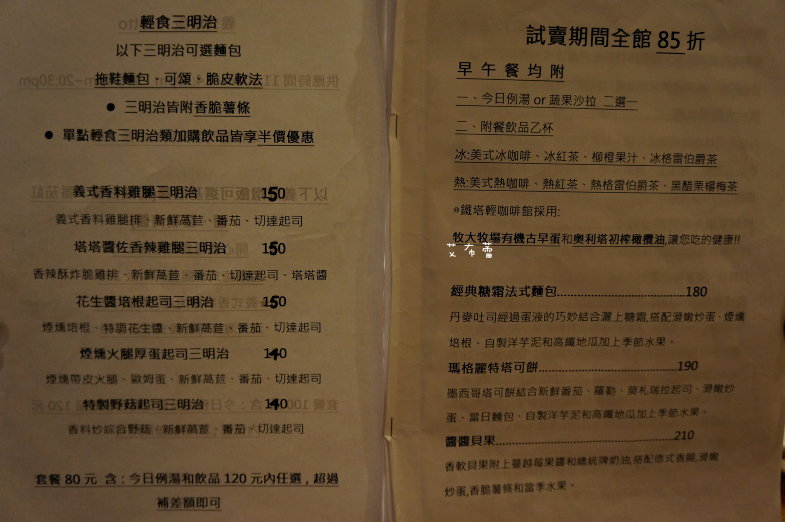 輕食三明治
以下三明治可選麵包
拖鞋麵包、可頌、脆皮軟法
● 三明治皆附香脆薯條
● 單點輕食三明治類加購飲品皆享半價優惠
義式香料雞腿三明治 150
義式香料雞腿排、新鮮萵苣、番茄、切達起司
塔塔醬佐香辣雞腿三明治 150
香辣酥炸脆雞排、新鮮萵苣、番茄、切達起司、塔塔醬
花生醬培根起司三明治 150
煙燻培根、特調花生醬、新鮮萵苣、番茄、切達起司
煙燻火腿厚蛋起司三明治 140
煙燻帶皮火腿、歐姆蛋、新鮮萵苣、番茄、切達起司
特製野菇起司三明治 140
香料炒綜合野菇、新鮮萵苣、番茄、切達起司
套餐 80 元 含:今日例湯和飲品 120 元內任選,超過
補差額即可
試賣期間全館 85 折
早 午 餐 均 附
一、今日例湯 or 蔬果沙拉 二選一
二、附餐飲品乙杯
冰:美式冰咖啡、冰紅茶、柳橙果汁、冰格雷伯爵茶
熱:美式熱咖啡、熱紅茶、熱格雷伯爵茶、黑醋栗楊梅茶
⊙鐵塔輕咖啡館採用:
牧大牧場有機古早蛋和奧利塔初榨橄欖油,讓您吃的健康!!
艾希蕾
經典糖霜法式麵包..........................................180
丹麥吐司經過蛋液的巧妙結合灑上糖霜,搭配滑嫩炒蛋、煙燻
培根、自製洋芋泥和高纖地瓜加上季節水果。
瑪格麗特塔可餅..............................................190
墨西哥塔可餅結合新鮮番茄、羅勒、莫札瑞拉起司、滑嫩炒
蛋、當日麵包、自製洋芋泥和高纖地瓜加上季節水果。
醬醬貝果..........................................................210
香軟貝果附上蔓越莓果醬和總統牌奶油,搭配德式香腸,滑嫩
炒蛋,香脆薯條和當季水果。